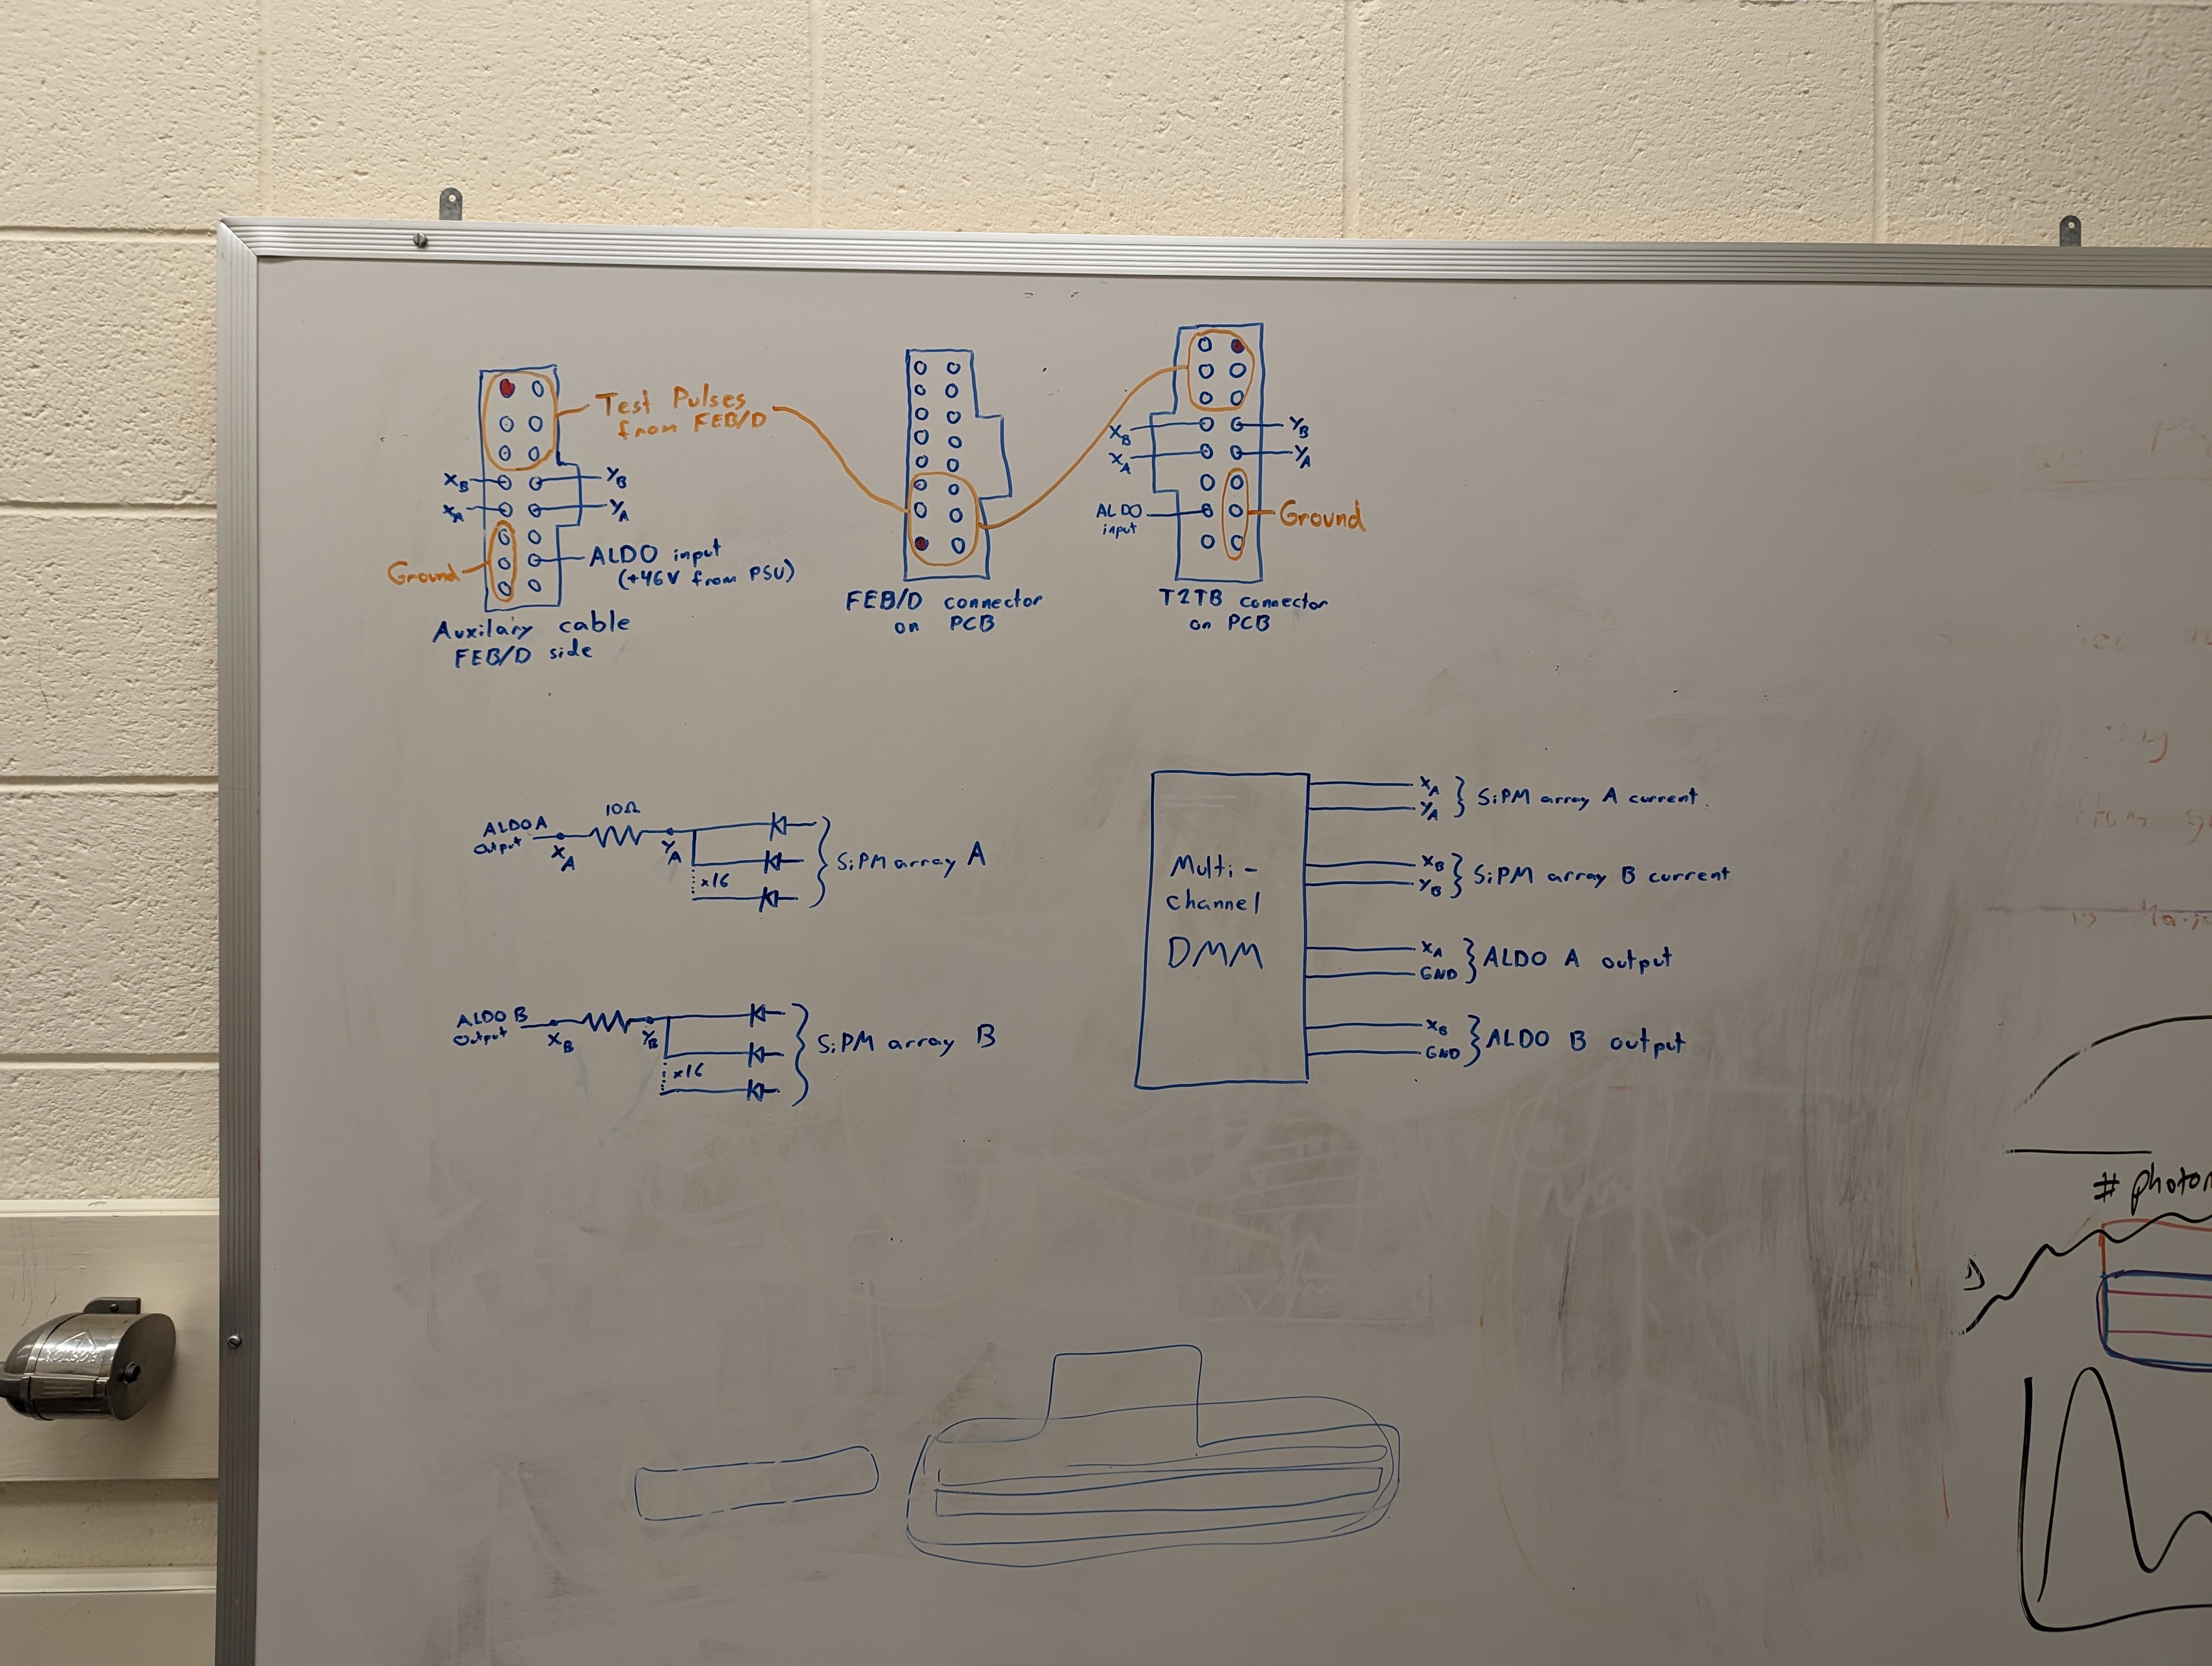 Test Pulses
from FEB/D
XB
YB
XA
YA
Ground
ALDO input
(+46V from PSU)
Auxilary cable
FEB/D side
FEB/D connector
on PCB
XB
YB
XA
YA
ALDO
input
Ground
T2TB connector
on PCB
ALDO A
output
10Ω
XA
YA
x16
SiPM array A
ALDO B
output
XB
YB
x16
SiPM array B
Multi-
channel
DMM
XA
YA
SiPM array A current
XB
YB
SiPM array B current
XA
GND
ALDO A output
XB
GND
ALDO B output
# photon